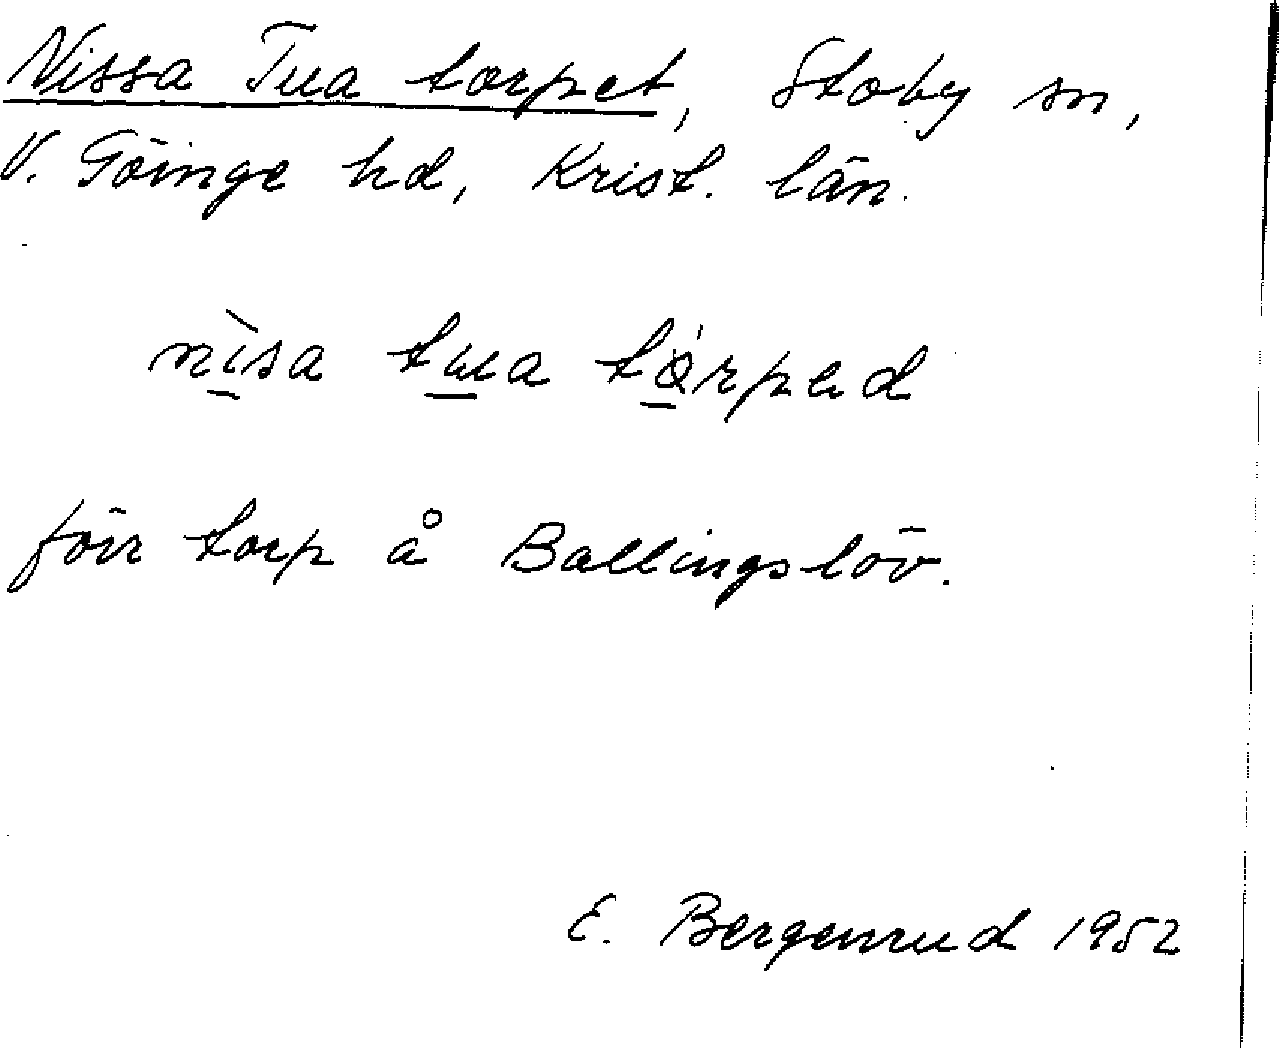 Nissa Tua torpet, Stoby sn,
V. Göinge hd, Krist. län.
nìsa tua tórped
förr torp å Ballingslöv.
E. Bergenrud 1952